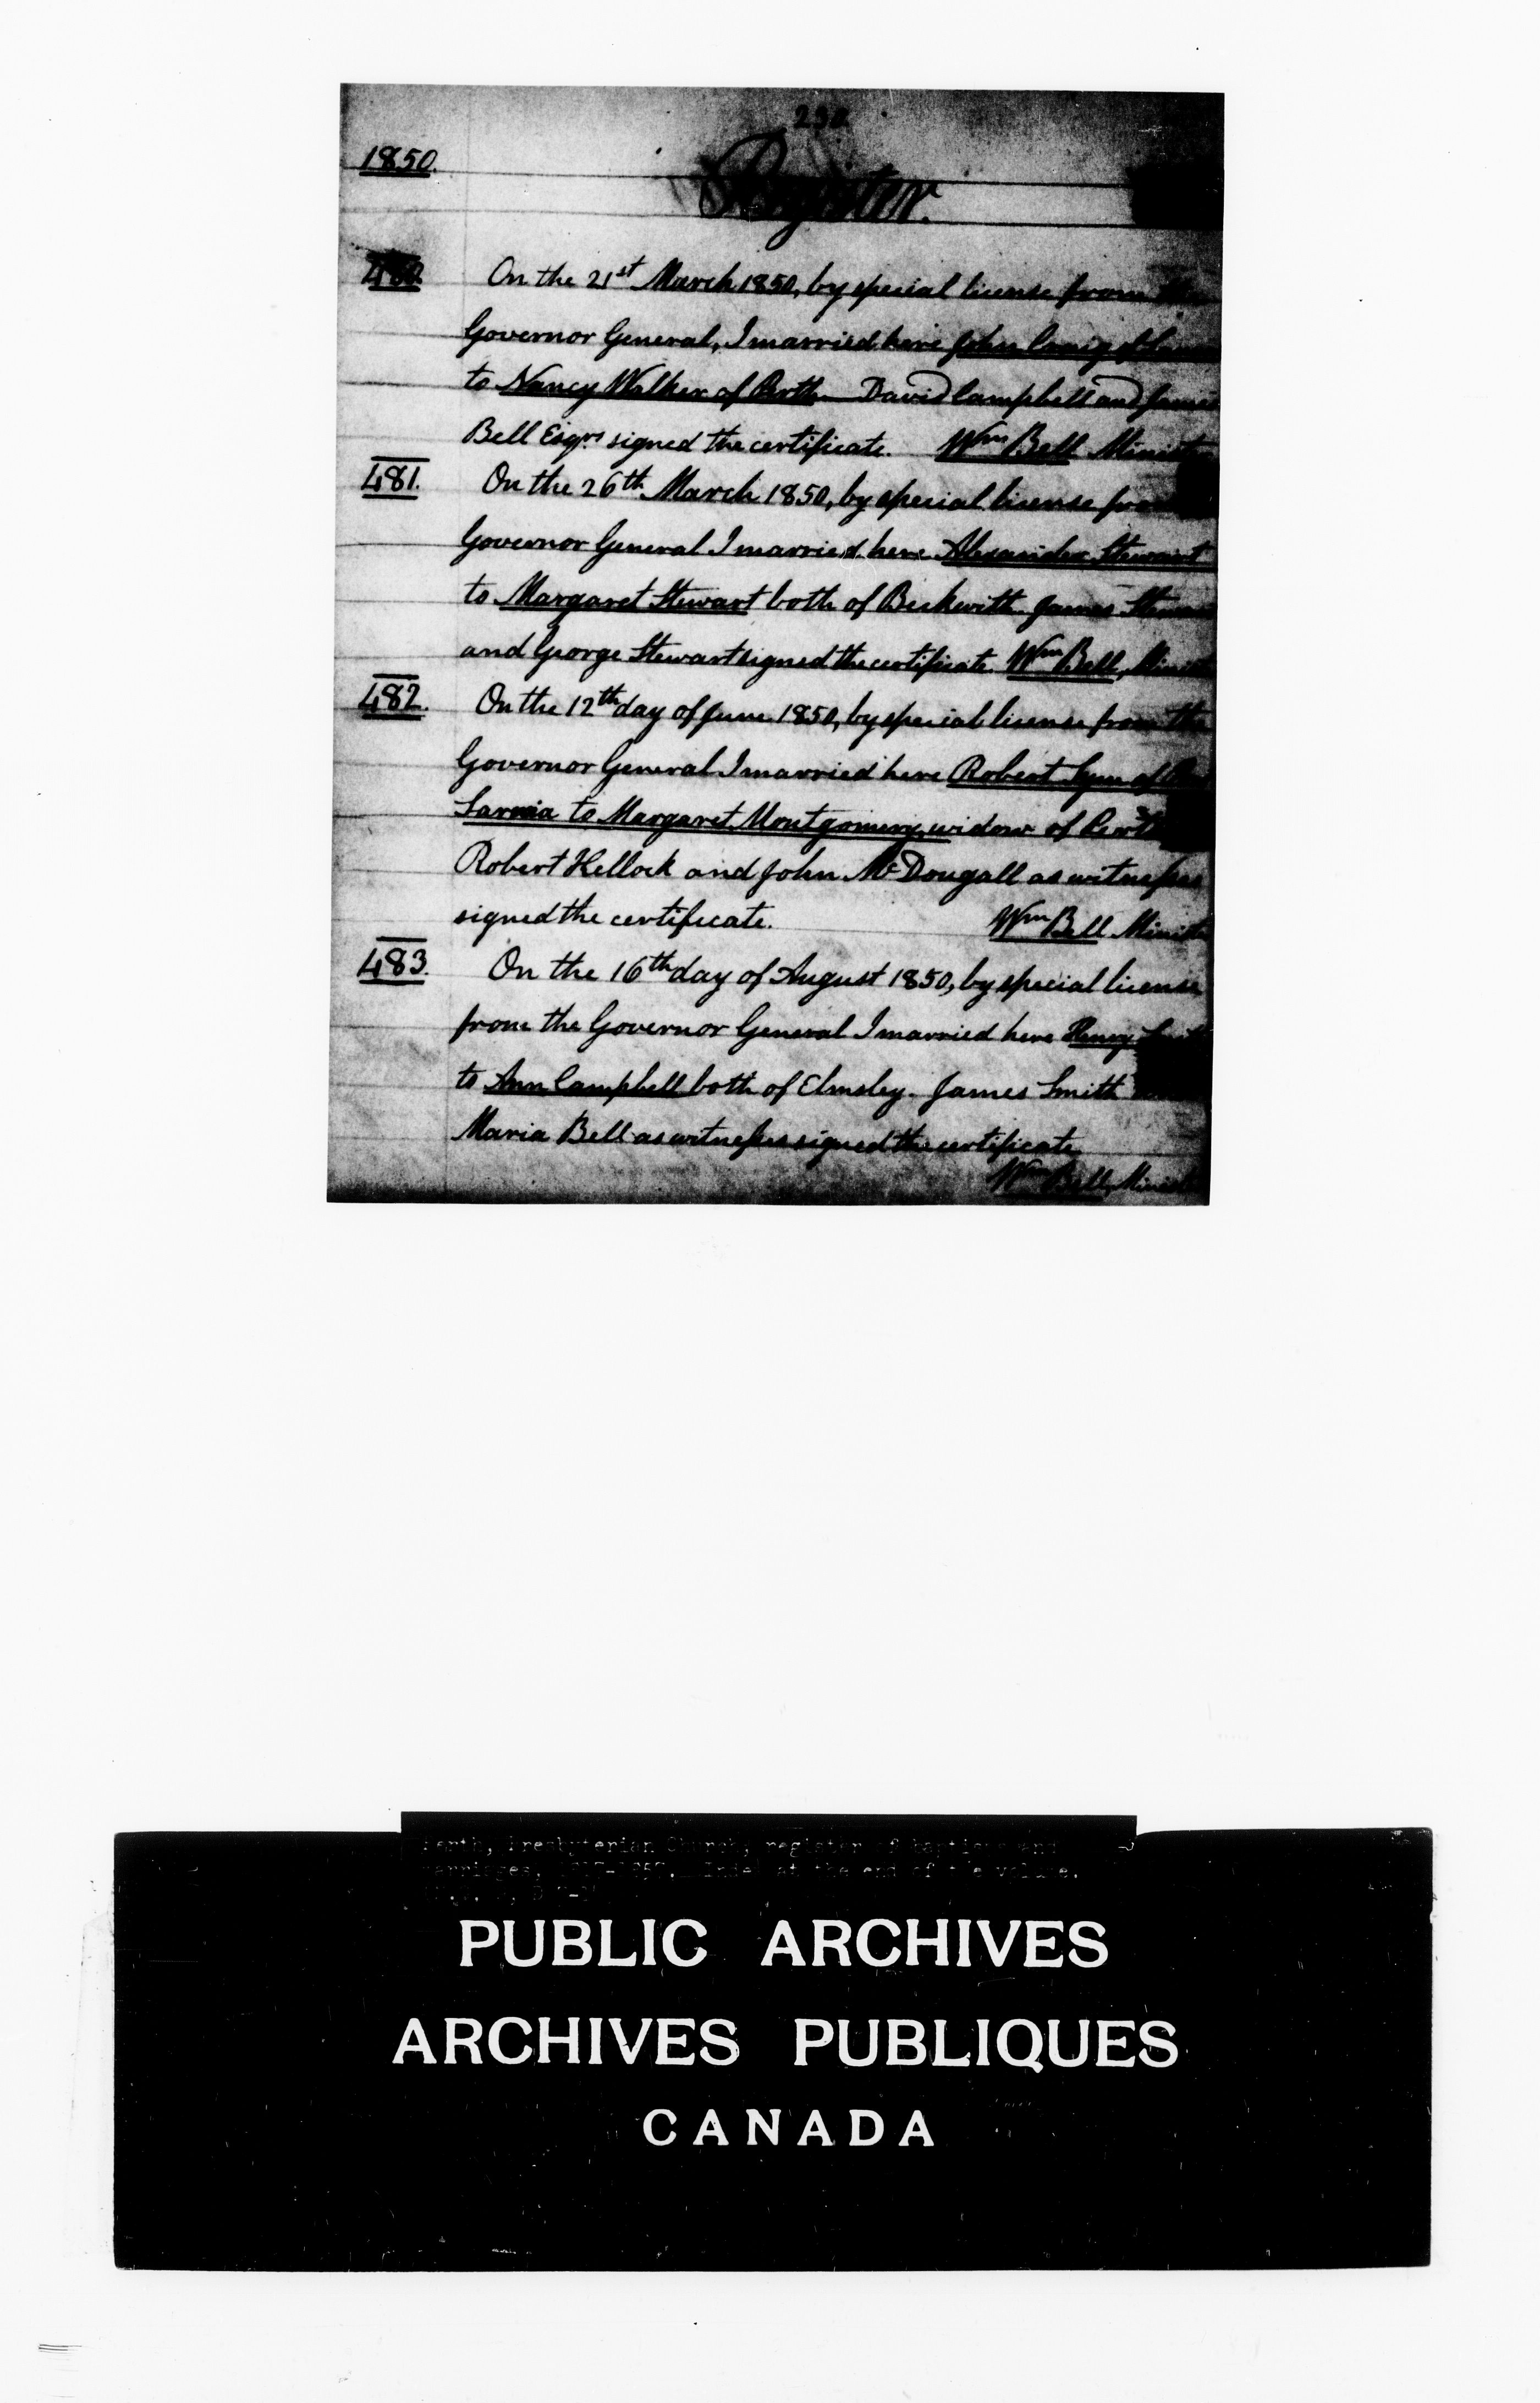 1850.
Register.
480. On the 21st March 1850, by special license from the
Governor General, I married here John Craig of
to Nancy Walker of Perth. David Campbell and James
Bell Esqrs signed the certificate. Wm Bell Minist
481. On the 26th March 1850, by special license from
Governor General I married here Alexander Stewart
to Margaret Stewart both of Beckwith. James Stewart
and George Stewart signed the certificate. Wm Bell, Minist
482. On the 12th day of June 1850, by special license from the
Governor General I married here Robert Lynn of
Sarnia to Margaret Montgomery, widow of Perth
Robert Kellock and John McDougall as witnesses
signed the certificate. Wm Bell Minist
483. On the 16th day of August 1850, by special license
from the Governor General I married here Henry
to Ann Campbell both of Elmsley. James Smith
Maria Bell as witnesses signed the certificate
Wm Bell, Minist
Perth, Presbyterian Church, register of baptisms and
marriages, Index at the end of the volume.
PUBLIC ARCHIVES
ARCHIVES PUBLIQUES
CANADA